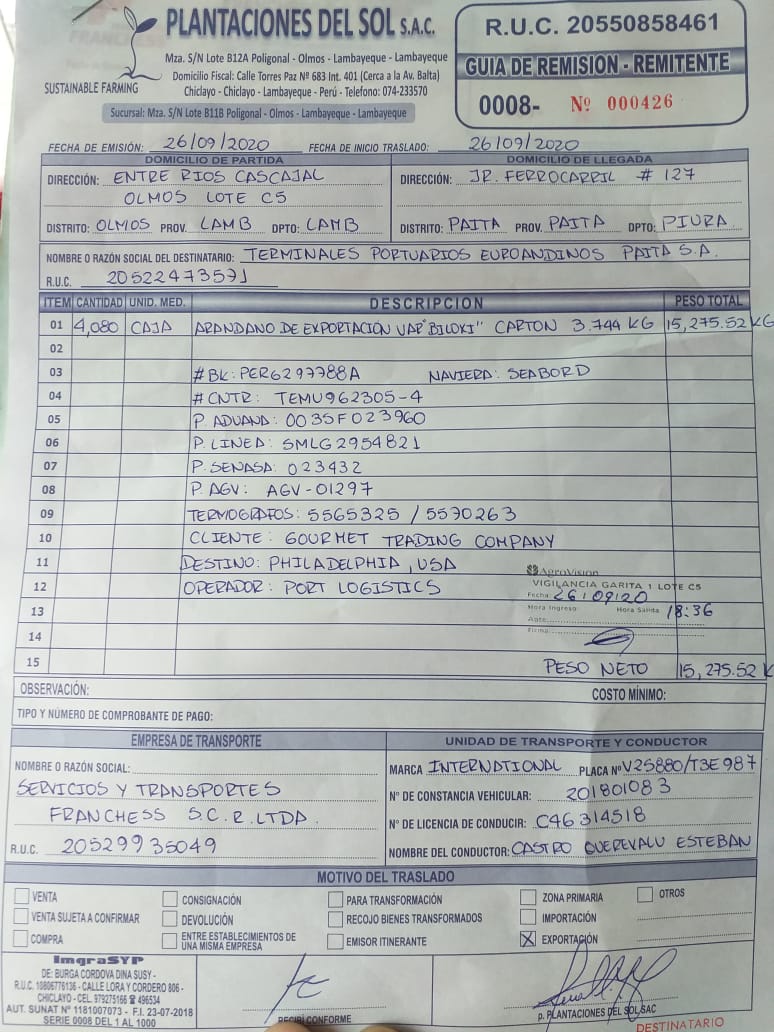 PLANTACIONES DEL SOL S.A.C.
SUSTAINABLE FARMING
Mza. S/N Lote B12A Poligonal - Olmos - Lambayeque - Lambayeque
Domicilio Fiscal: Calle Torres Paz Nº 683 Int. 401 (Cerca a la Av. Balta)
Chiclayo - Chiclayo - Lambayeque - Perú - Telefono: 074-233570
Sucursal: Mza. S/N Lote B11B Poligonal - Olmos - Lambayeque - Lambayeque
R.U.C. 20550858461
GUIA DE REMISION - REMITENTE
0008- Nº 000426
FECHA DE EMISIÓN: 26/09/2020 FECHA DE INICIO TRASLADO: 26/09/2020
DOMICILIO DE PARTIDA
DIRECCIÓN: ENTRE RIOS CASCAJAL
OLMOS LOTE C5
DISTRITO: OLMOS PROV. LAMB DPTO: LAMB
DOMICILIO DE LLEGADA
DIRECCIÓN: JR. FERROCARRIL # 127
DISTRITO: PAITA PROV. PAITA DPTO: PIURA
NOMBRE O RAZÓN SOCIAL DEL DESTINATARIO: TERMINALES PORTUARIOS EUROANDINOS PAITA S.A.
R.U.C. 20522473571
ITEM CANTIDAD UNID. MED. DESCRIPCION PESO TOTAL
01 4,080 CAJA ARANDANO DE EXPORTACION VAR "BILOXI" CARTON 3.744 KG 15,275.52 KG
02
03 # BK: PER6297788A NAVIERA: SEABORD
04 # CNTR: TEMU962305-4
05 P. ADUANA: 0035F023960
06 P. LINEA: SMLG2954821
07 P. SENASA: 023432
08 P. AGV: AGV-01297
09 TERMOGRAFOS: 5565325 / 5570263
10 CLIENTE: GOURMET TRADING COMPANY
11 DESTINO: PHILADELPHIA, USA
12 OPERADOR: PORT LOGISTICS
13
14
15 PESO NETO 15,275.52 K
AgroVision
VIGILANCIA GARITA 1 LOTE C5
Fecha: 26/09/20
Hora Ingreso Hora Salida 18:36
Firma
OBSERVACIÓN:
COSTO MÍNIMO:
TIPO Y NÚMERO DE COMPROBANTE DE PAGO:
EMPRESA DE TRANSPORTE
NOMBRE O RAZÓN SOCIAL:
SERVICIOS Y TRANSPORTES
FRANCHESS S.C.R.LTDA.
R.U.C. 20529935049
UNIDAD DE TRANSPORTE Y CONDUCTOR
MARCA INTERNATIONAL PLACA Nº V2S880/T3E987
N° DE CONSTANCIA VEHICULAR: 201801083
N° DE LICENCIA DE CONDUCIR: C46314518
NOMBRE DEL CONDUCTOR: CASTRO QUEREVALU ESTEBAN
MOTIVO DEL TRASLADO
VENTA
VENTA SUJETA A CONFIRMAR
COMPRA
CONSIGNACIÓN
DEVOLUCIÓN
ENTRE ESTABLECIMIENTOS DE
UNA MISMA EMPRESA
PARA TRANSFORMACIÓN
RECOJO BIENES TRANSFORMADOS
EMISOR ITINERANTE
ZONA PRIMARIA
IMPORTACIÓN
X EXPORTACIÓN
OTROS
ImgraSYP
DE: BURGA CORDOVA DINA SUSY -
R.U.C. 18806776136 - CALLE LORA Y CORDERO 806 -
CHICLAYO - CEL. 979275166 ☎ 496534
AUT. SUNAT Nº 1181007073 - F.I. 23-07-2018
SERIE 0008 DEL 1 AL 1000
RECIBÍ CONFORME
p. PLANTACIONES DEL SOL SAC
DESTINATARIO